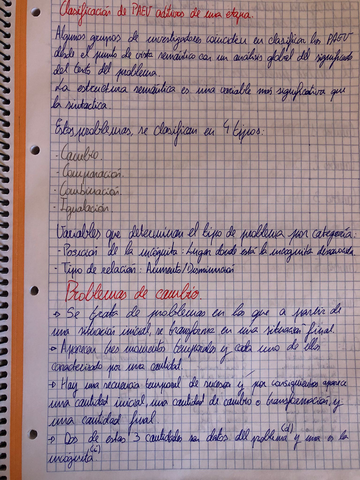 Clasificación de PAEV aditivos de una etapa.
Algunos grupos de investigadores coinciden en clasificar los PAEV
desde el punto de vista semántico con un análisis global del significado
del texto del problema.
La estructura semántica es una variable más significativa que
la sintáctica.
Estos problemas, se clasifican en 4 tipos:
- Cambio.
- Comparación.
- Combinación.
- Igualación
Variables que determinan el tipo de problema por categoría:
- Posición de la incógnita: Lugar donde está la incógnita desconocida.
- Tipo de relación: Aumento/Disminución
Problemas de cambio.
Se trata de problemas en los que a partir de
una situación inicial, se transforma en una situación final.
Aparecen tres momentos temporales y cada uno de ellos
caracterizado por una cantidad.
Hay una secuencia temporal de sucesos y por consiguiente aparece
una cantidad inicial, una cantidad de cambio o transformación, y
una cantidad final.
Dos de estas 3 cantidades son datos del problema (d) y una es la
incógnita (i)